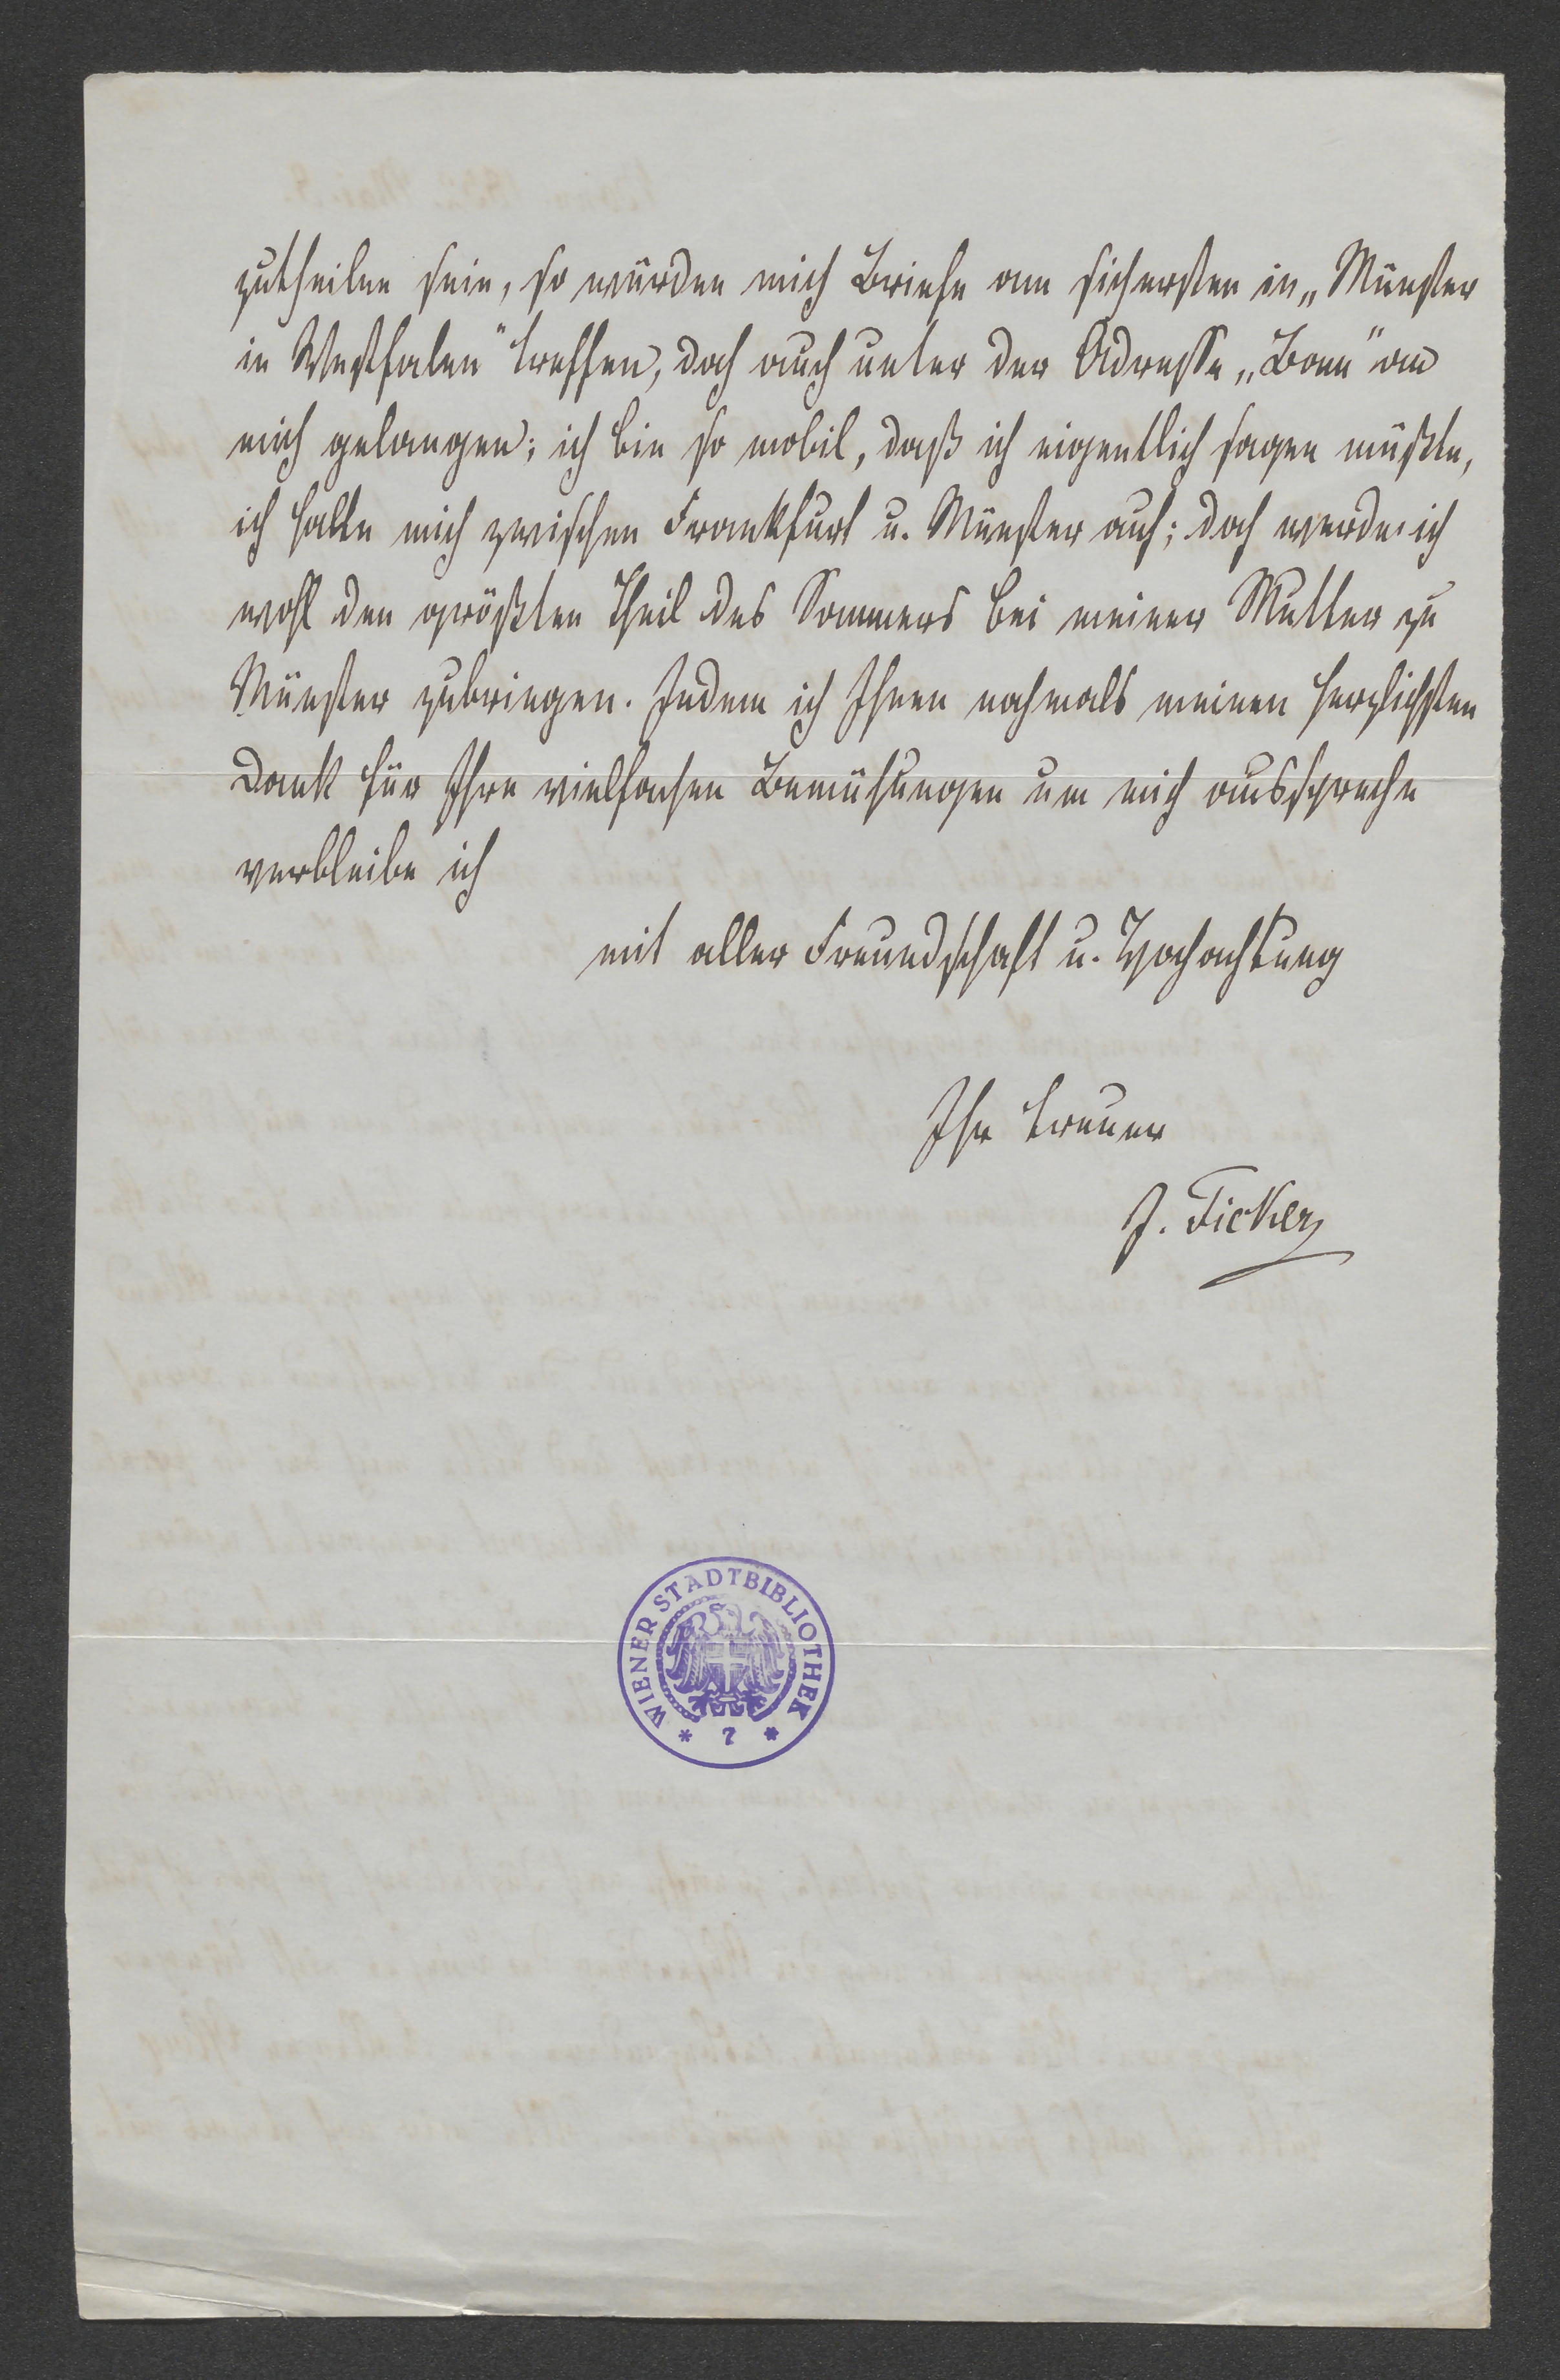 zutheilen sein, so würden mich Briefe am sichersten in „Münster
in Westfalen" treffen, doch auch unter der Adresse „Bonn" an
mich gelangen; ich bin so mobil, daß ich eigentlich sagen müßte,
ich halte mich zwischen Frankfurt u. Münster auf; doch werde ich
wohl den größten Theil des Sommers bei meiner Mutter zu
Münster zubringen. Indem ich Ihnen nochmals meinen herzlichsten
Dank für Ihre vielfachen Bemühungen um mich ausspreche
verbleibe ich
mit aller Freundschaft u. Hochachtung
Ihr treuer
J. Ficker
WIENER STADTBIBLIOTHEK
* 7 *